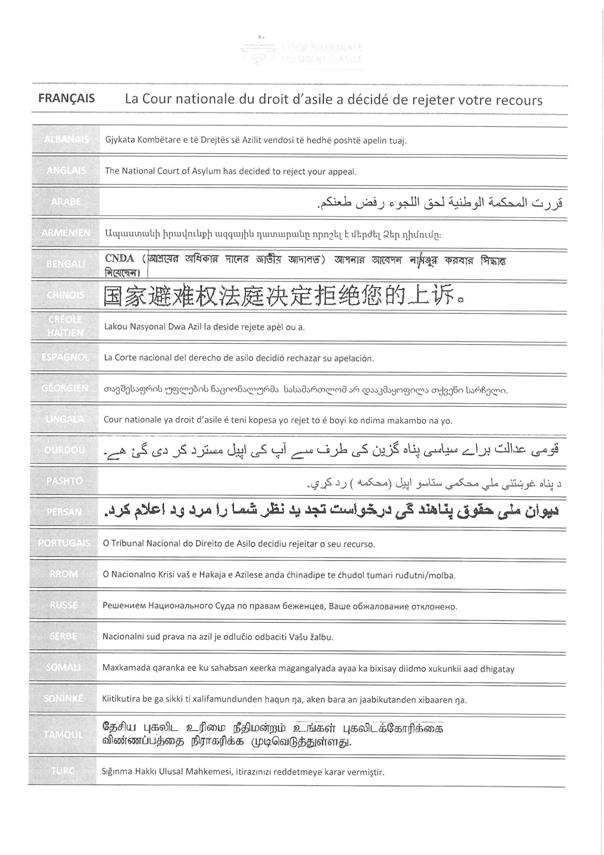 COUR NATIONALE
DU DROIT D'ASILE
FRANÇAIS La Cour nationale du droit d'asile a décidé de rejeter votre recours
ALBANAIS Gjykata Kombëtare e të Drejtës së Azilit vendosi të hedhë poshtë apelin tuaj.
ANGLAIS The National Court of Asylum has decided to reject your appeal.
ARABE قررت المحكمة الوطنية لحق اللجوء رفض طعنكم.
ARMÉNIEN Ապաստանի իրավունքի ազգային դատարանը որոշել է մերժել Ձեր դիմումը:
BENGALI CNDA (আশ্রয়ের অধিকার দানের জাতীয় আদালত) আপনার আবেদন নামঞ্জুর করবার সিদ্ধান্ত
নিয়েছেন।
CHINOIS 国家避难权法庭决定拒绝您的上诉。
CRÉOLE
HAITIEN Lakou Nasyonal Dwa Azil la deside rejete apèl ou a.
ESPAGNOL La Corte nacional del derecho de asilo decidió rechazar su apelación.
GÉORGIEN თავშესაფრის უფლების ნაციონალურმა სასამართლომ არ დააკმაყოფილა თქვენი საჩელი.
LINGALA Cour nationale ya droit d'asile é teni kopesa yo rejet to é boyi ko ndima makambo na yo.
OURDOU قومی عدالت براے سیاسی پناہ گزین کی طرف سے آپ کی اپیل مسترد کر دی گئ ھے.
PASHTO د پناه غوښتنې ملي محکمې ستاسو اپيل (محکمه ) رد کړې.
PERSAN ديوان ملی حقوق پناهند گی درخواست تجد يد نظر شما را مرد ود اعلام کرد.
PORTUGAIS O Tribunal Nacional do Direito de Asilo decidiu rejeitar o seu recurso.
RROM O Nacionalno Krisi vaš e Hakaja e Azilese anda ćhinadipe te ćhudol tumari ruđutni/molba.
RUSSE Решением Национального Суда по правам беженцев, Ваше обжалование отклонено.
SERBE Nacionalni sud prava na azil je odlučio odbaciti Vašu žalbu.
SOMALI Maxkamada qaranka ee ku sahabsan xeerka magangalyada ayaa ka bixisay diidmo xukunkii aad dhigatay
SONINKÉ Kiitikutira be ga sikki ti xalifamundunden haqun ŋa, aken bara an jaabikutanden xibaaren ŋa.
TAMOUL தேசிய புகலிட உரிமை நீதிமன்றம் உங்கள் புகலிடக்கோரிக்கை
விண்ணப்பத்தை நிராகரிக்க முடிவெடுத்துள்ளது.
TURC Sığınma Hakkı Ulusal Mahkemesi, itirazınızı reddetmeye karar vermiştir.